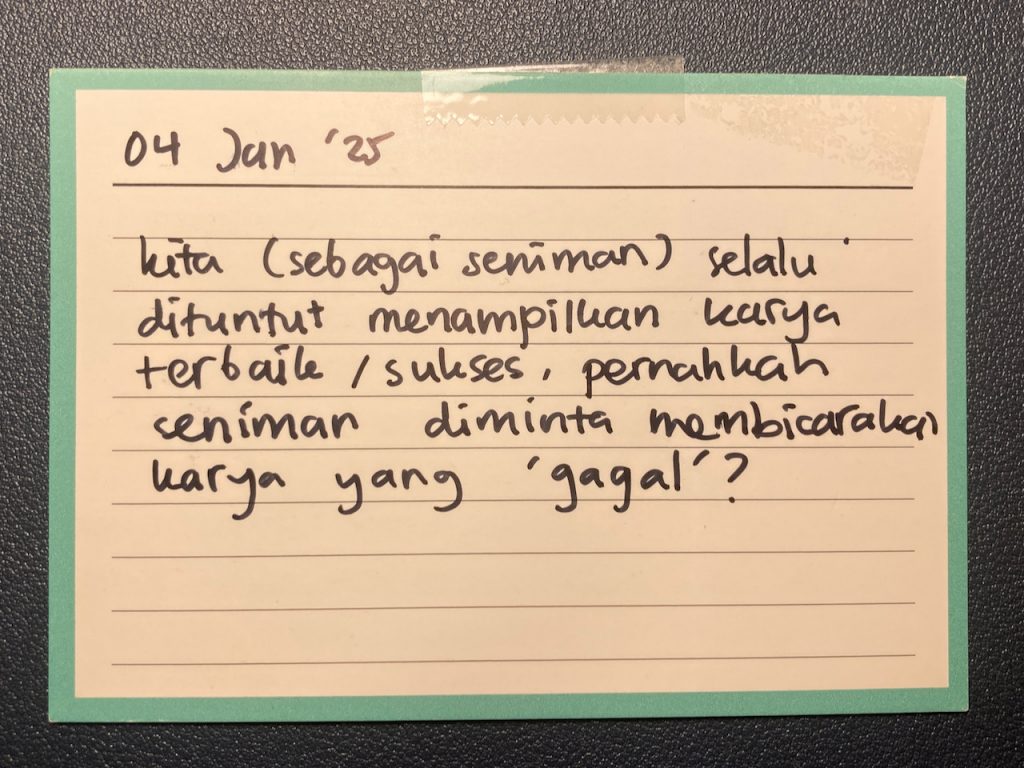 04 Jan '25
kita (sebagai seniman) selalu
dituntut menampilkan karya
terbaik / sukses, pernahkah
seniman diminta membicarakan
karya yang 'gagal'?